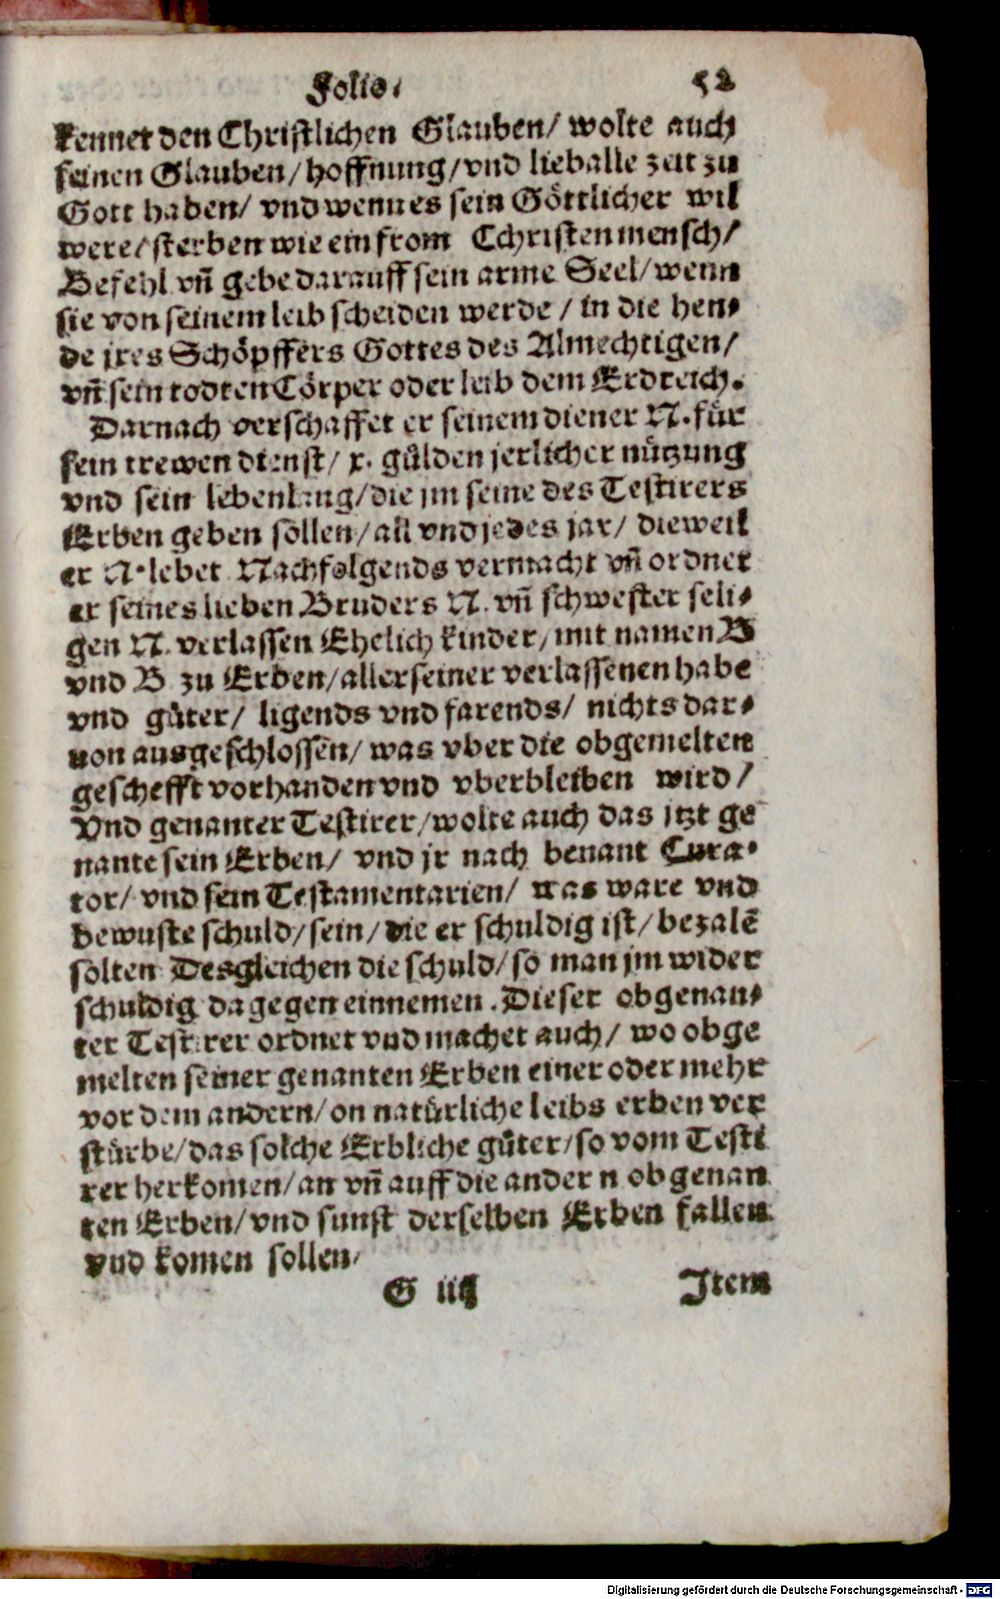 Folio. 52
kennet den Christlichen Glauben/ wolte auch
seinen Glauben/ hoffnung/ vnd lieb alle zeit zu
Gott haben/ vnd wenn es sein Göttlicher wil
were/ sterben wie ein from Cchristen mensch/
Befehl vñ gebe darauff sein arme Seel/ wenn
sie von seinem leib scheiden werde / in die hen-
de jres Schöpffers Gottes des Almechtigen/
vñ sein todten Cörper oder leib dem Erdreich.
Darnach verschaffet er seinem diener N. für
sein trewen dienst/ x. gülden jerlicher nützung
vnd sein lebenlang/ die jm seine des Testirers
Erben geben sollen/ all vnd jedes jar/ dieweil
er N. lebet Nachfolgends vermacht vñ ordnet
er seines lieben Bruders N. vñ schwester seli-
gen N. verlassen Ehelich kinder/ mit namen B
vnd B zu Erben/ aller seiner verlassenen habe
vnd güter/ ligends vnd farends/ nichts dar-
uon ausgeschlossen/ was vber die obgemelten
geschefft vorhanden vnd vberbleiben wird/
Vnd genanter Testirer/ wolte auch das jtzt ge
nante sein Erben/ vnd jr nach benant Cura-
tor/ vnd sein Testamentarien/ was ware vnd
bewuste schuld/ sein/ die er schuldig ist/ bezalē
solten Desgleichen die schuld/ so man jm wider
schuldig dagegen einnemen. Dieser obgenan-
ter Testirer ordnet vnd machet auch/ wo obge
melten seiner genanten Erben einer oder mehr
vor dem andern/ on natürliche leibs erben ver
stürbe/ das solche Erbliche güter/ so vom Testi
rer herkomen/ an vñ auff die ander n obgenan
ten Erben/ vnd sunst derselben Erben fallen
vnd komen sollen/
G iiij Item
Digitalisierung gefördert durch die Deutsche Forschungsgemeinschaft - DFG